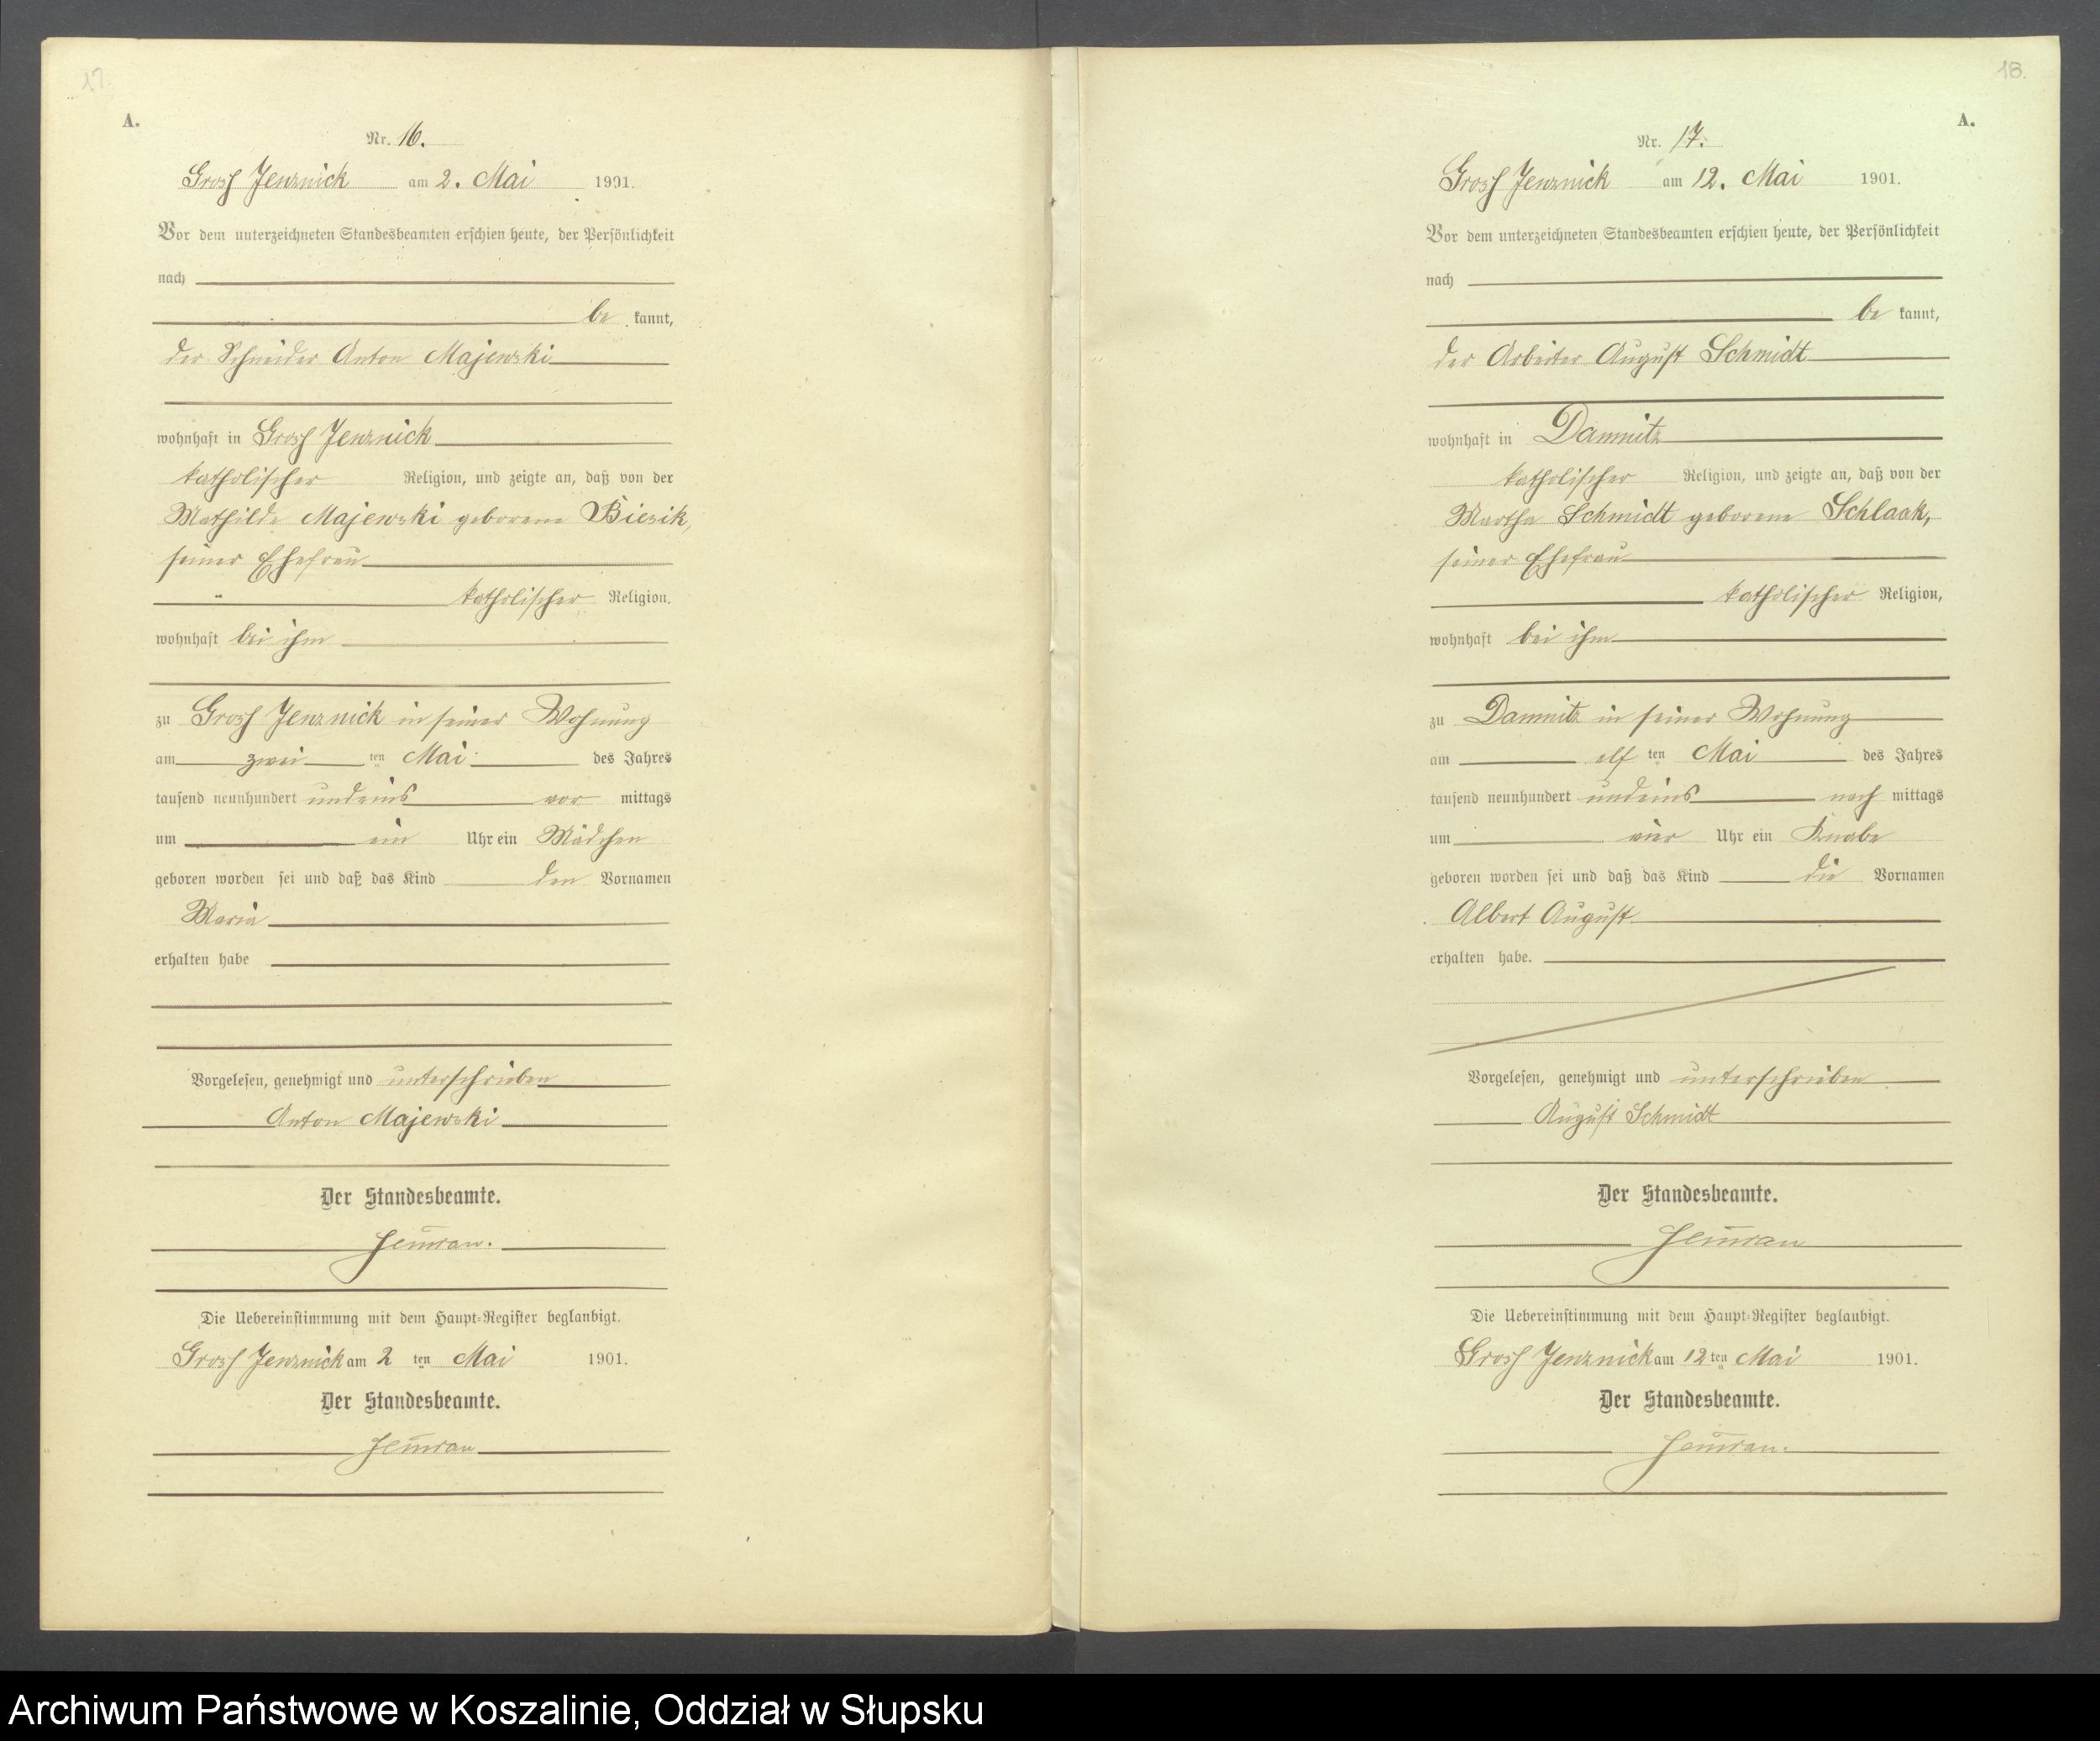 17.
A.
Nr. 16.
Gross Jenznick am 2. Mai 1901.
Vor dem unterzeichneten Standesbeamten erschien heute, der Persönlichkeit
nach
be kannt,
der Schneider Anton Majewski
wohnhaft in Gross Jenznick
katholischer Religion, und zeigte an, daß von der
Mathilde Majewski geborene Biesik,
seiner Ehefrau
katholischer Religion.
wohnhaft bei ihm
zu Gross Jenznick in seiner Wohnung
am zwei ten Mai des Jahres
tausend neunhundert undeins vor mittags
um ein Uhr ein Mädchen
geboren worden sei und daß das Kind den Vornamen
Maria
erhalten habe
Vorgelesen, genehmigt und unterschrieben
Anton Majewski
Der Standesbeamte.
Die Uebereinstimmung mit dem Haupt-Register beglaubigt.
Gross Jenznick am 2 ten Mai 1901.
Der Standesbeamte.
18.
A.
Nr. 17.
Gross Jenznick am 12. Mai 1901.
Vor dem unterzeichneten Standesbeamten erschien heute, der Persönlichkeit
nach
be kannt,
der Arbeiter August Schmidt
wohnhaft in Damnitz
katholischer Religion, und zeigte an, daß von der
Martha Schmidt geborene Schlaak,
seiner Ehefrau
katholischer Religion,
wohnhaft bei ihm
zu Damnitz in seiner Wohnung
am elf ten Mai des Jahres
tausend neunhundert undeins nach mittags
um vier Uhr ein Knabe
geboren worden sei und daß das Kind die Vornamen
Albert August
erhalten habe.
Vorgelesen, genehmigt und unterschrieben
August Schmidt
Der Standesbeamte.
Die Uebereinstimmung mit dem Haupt-Register beglaubigt.
Gross Jenznick am 12 ten Mai 1901.
Der Standesbeamte.
Archiwum Państwowe w Koszalinie, Oddział w Słupsku